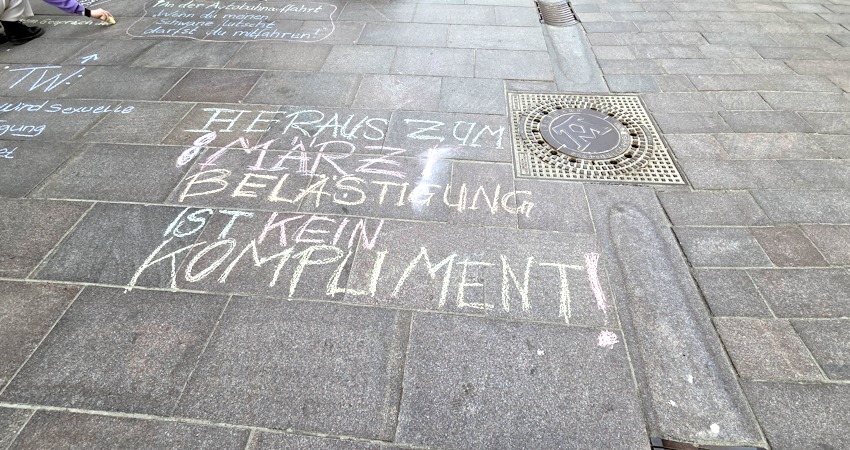 An der Autobahnauffahrt
"Wenn du meinen
Schwanz lutscht
darfst du mitfahren!"
TW:
wird sexuelle
HERAUS ZUM
8 MÄRZ!
BELÄSTIGUNG
IST KEIN
KOMPLIMENT!